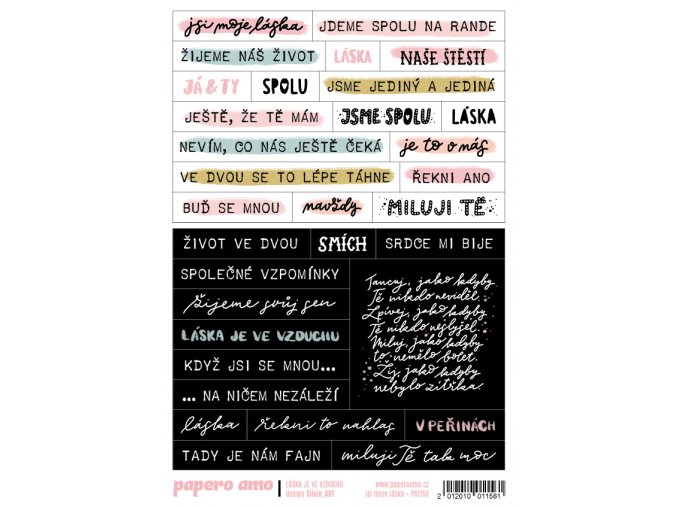 jsi moje láska
JDEME SPOLU NA RANDE
ŽIJEME NÁŠ ŽIVOT
LÁSKA
NAŠE ŠTĚSTÍ
JÁ & TY
SPOLU
JSME JEDINÝ A JEDINÁ
JEŠTĚ, ŽE TĚ MÁM
JSME SPOLU
LÁSKA
NEVÍM, CO NÁS JEŠTĚ ČEKÁ
je to o nás
VE DVOU SE TO LÉPE TÁHNE
ŘEKNI ANO
BUĎ SE MNOU
navždy
MILUJI TĚ
ŽIVOT VE DVOU
SMÍCH
SRDCE MI BIJE
SPOLEČNÉ VZPOMÍNKY
žijeme svůj sen
LÁSKA JE VE VZDUCHU
KDYŽ JSI SE MNOU...
... NA NIČEM NEZÁLEŽÍ
Tancuj, jako kdyby
Tě nikdo neviděl.
Zpívej, jako kdyby
Tě nikdo neslyšel.
Miluj, jako kdyby
to nemělo bolet.
Žij, jako kdyby
nebylo zítřka.
láska
řekni to nahlas
V PEŘINÁCH
TADY JE NÁM FAJN
miluji Tě tak moc
papero amo
LÁSKA JE VE VZDUCHU
design Silvie_ART
www.paperoamo.cz
jsi moje láska - PA1156
2 012010 011561